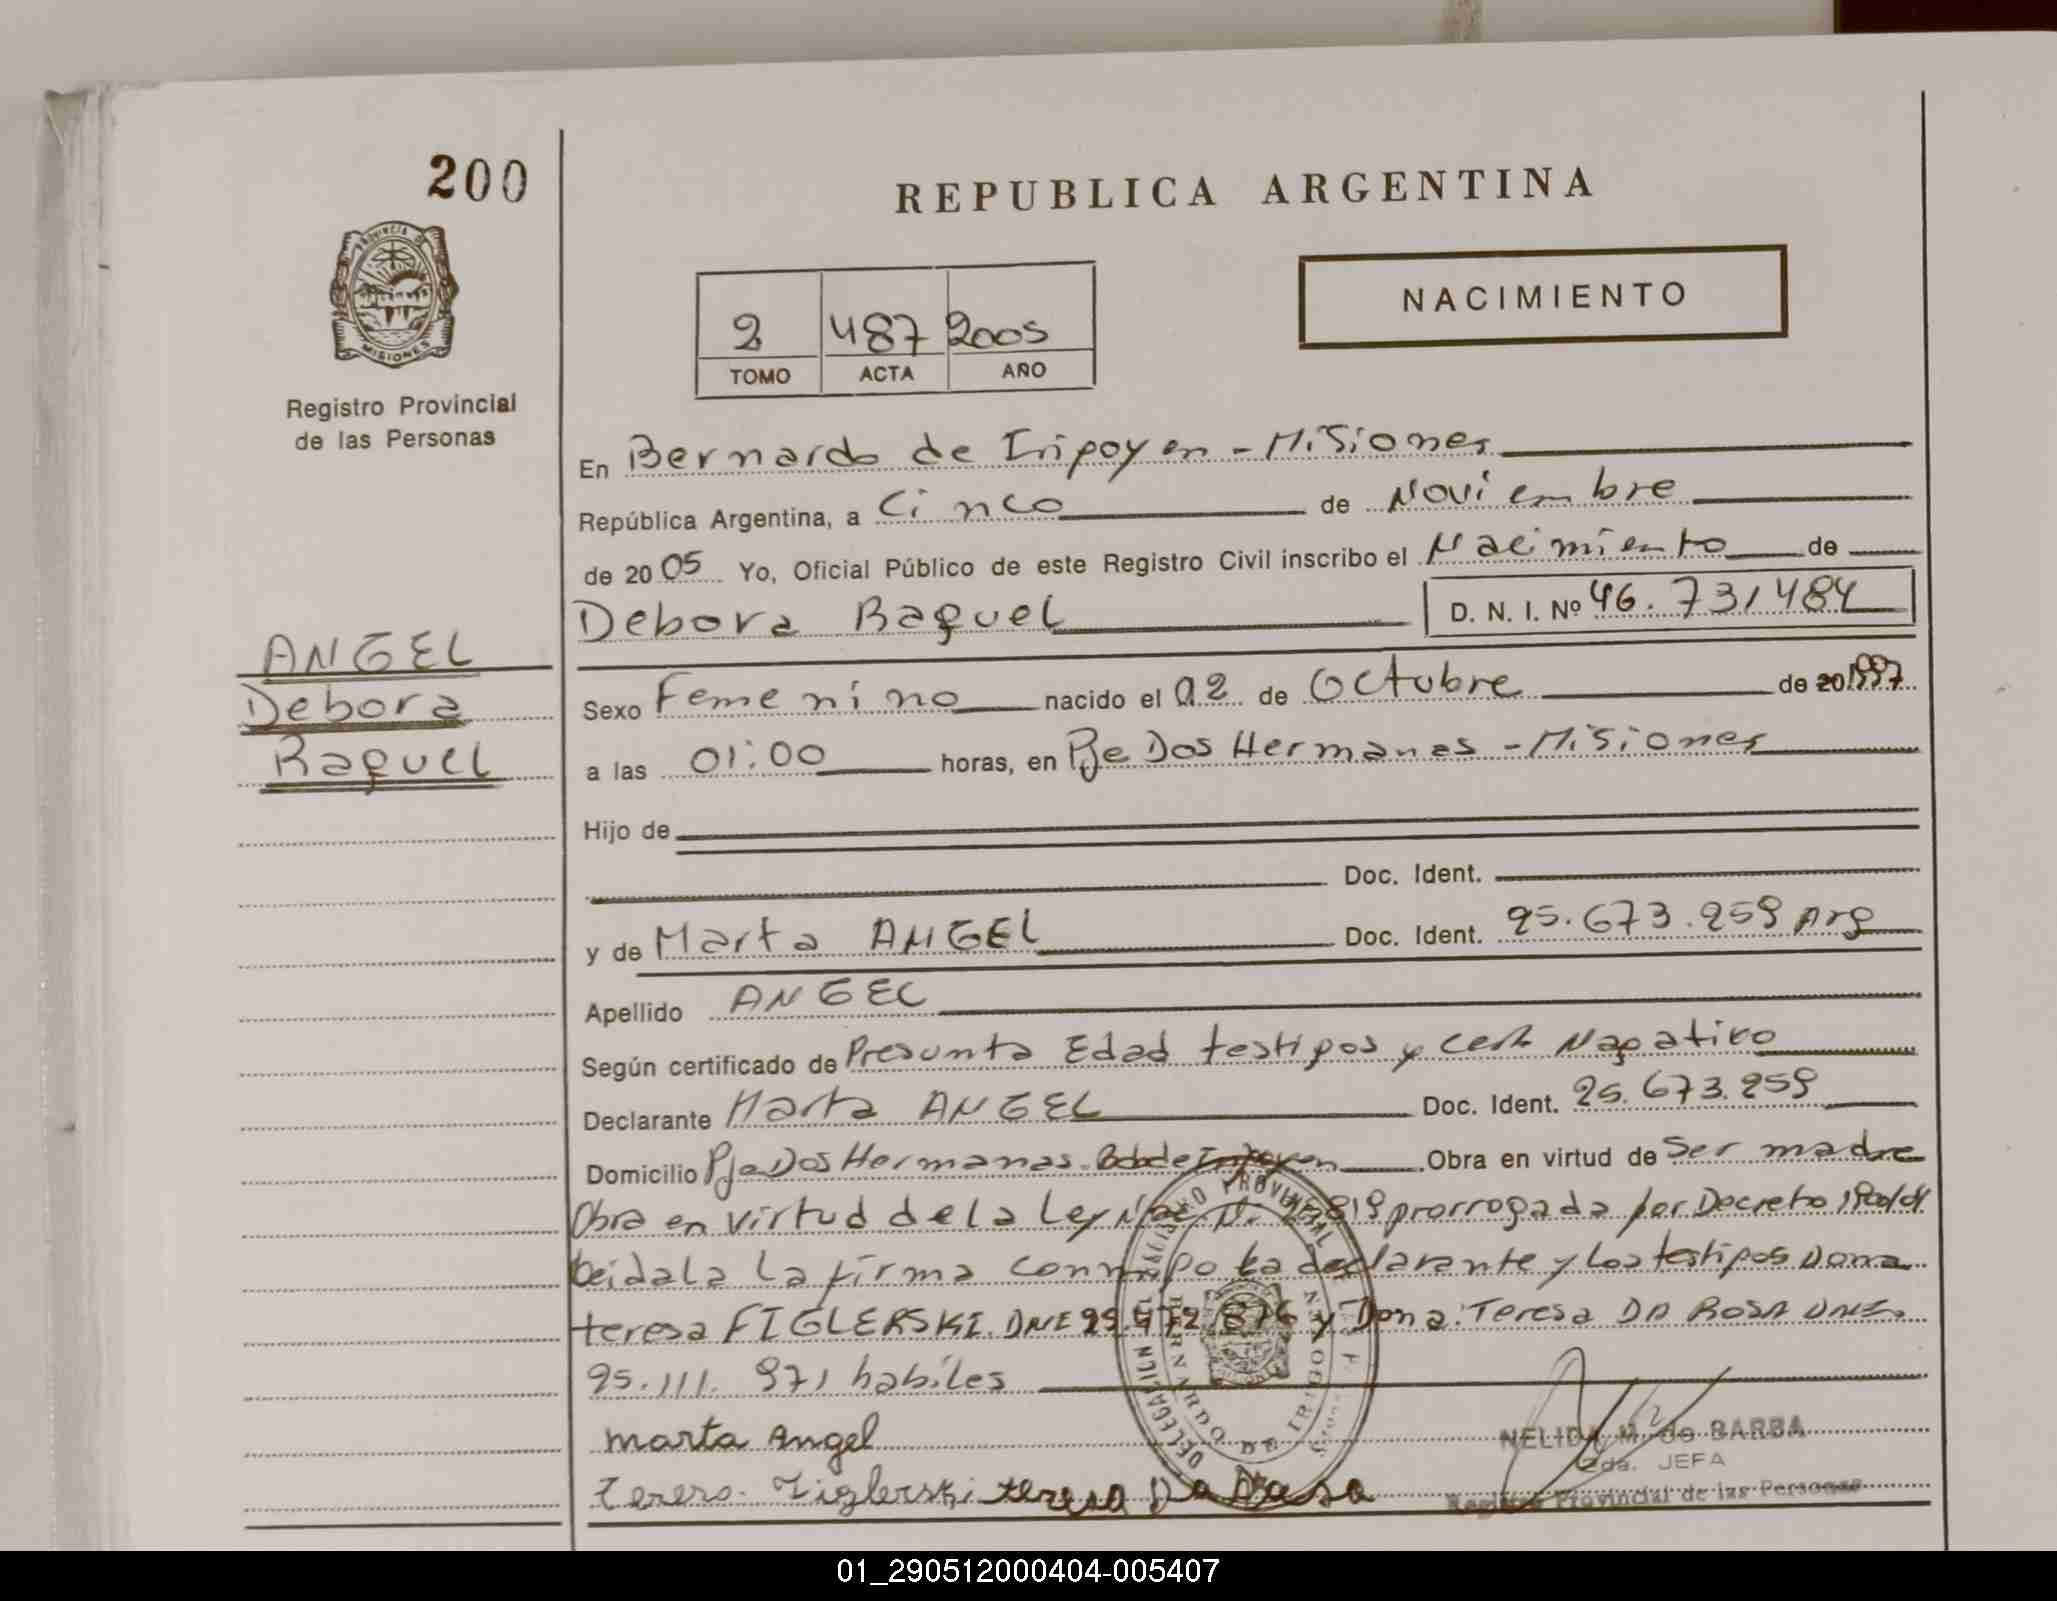 200
PROVINCIA DE
MISIONES
Registro Provincial
de las Personas
REPUBLICA ARGENTINA
2 487 2005
TOMO ACTA AÑO
NACIMIENTO
En Bernardo de Iripoyen - Misiones
República Argentina, a Cinco de Noviembre
de 2005 Yo, Oficial Público de este Registro Civil inscribo el Nacimiento de
Debora Raquel D. N. I. Nº 46.731484
ANGEL
Debora
Raquel
Sexo Femenino nacido el 02 de Octubre de 20 1997
a las 01:00 horas, en Pje Dos Hermanas - Misiones
Hijo de
Doc. Ident.
y de Marta ANGEL Doc. Ident. 25.673.259 Arg
Apellido ANGEL
Según certificado de Presunta Edad testigos y cert Negativo
Declarante Marta ANGEL Doc. Ident. 25.673.259
Domicilio Pje Dos Hermanas. Bdo de Irigoyen Obra en virtud de Ser madre
Obra en virtud de la Ley Nac N. 819 prorrogada por Decreto
Leidala La firma conmigo la declarante y los testigos Dona
teresa FIGLERSKI. DNI 876 y Dona. Teresa DA ROSA DNI.
95.111.971 habiles
marta Angel
Figlerski teresa Da Rosa
REGISTRO PROVINCIAL
DELEGACION
BERNARDO DE IRIGOYEN
NELIDA M. de BARBA
2da. JEFA
Registro Provincial de las Personas
01_290512000404-005407